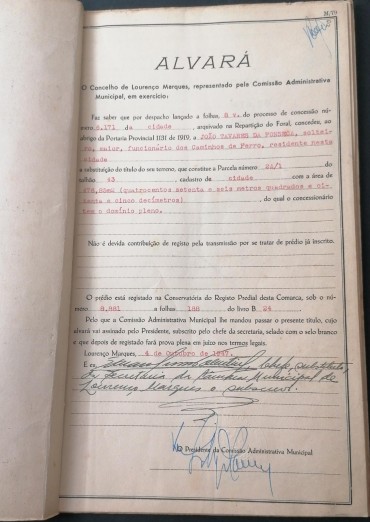 ALVARÁ
O Concelho de Lourenço Marques, representado pela Comissão Administrativa
Municipal, em exercício:
Faz saber que por despacho lançado a folhas, 8 v. do processo de concessão nú-
mero 5.171 da cidade, arquivado na Repartição do Foral, concedeu, ao
abrigo da Portaria Provincial 1131 de 1919, a JOÃO TAVARES DA FONSECA, soltei-
ro, maior, funcionário dos Caminhos de Ferro, residente nesta
cidade
a substituição do título do seu terreno, que constitue a Parcela número do
talhão 43, cadastro da cidade com a área de
(quatrocentos setenta e seis metros quadrados e
e cinco decímetros), do qual o concessionário
tem o domínio pleno.
Não é devida contribuição de registo pela transmissão por se tratar de prédio já inscrito.
O prédio está registado na Conservatória do Registo Predial desta Comarca, sob o nú-
mero 8,881 a folhas 188 do livro B 24
Pelo que a Comissão Administrativa Municipal lhe mandou passar o presente título, cujo
alvará vai assinado pelo Presidente, subscrito pelo chefe da secretaria, selado com o selo branco
e que depois de registado fará prova plena em juízo nos termos legais.
Lourenço Marques, 4 de Outubro de 1947.
E eu, chefe, substituto,
da Secretaria da Câmara Municipal de
Lourenço Marques o subscrevi.
O Presidente da Comissão Administrativa Municipal